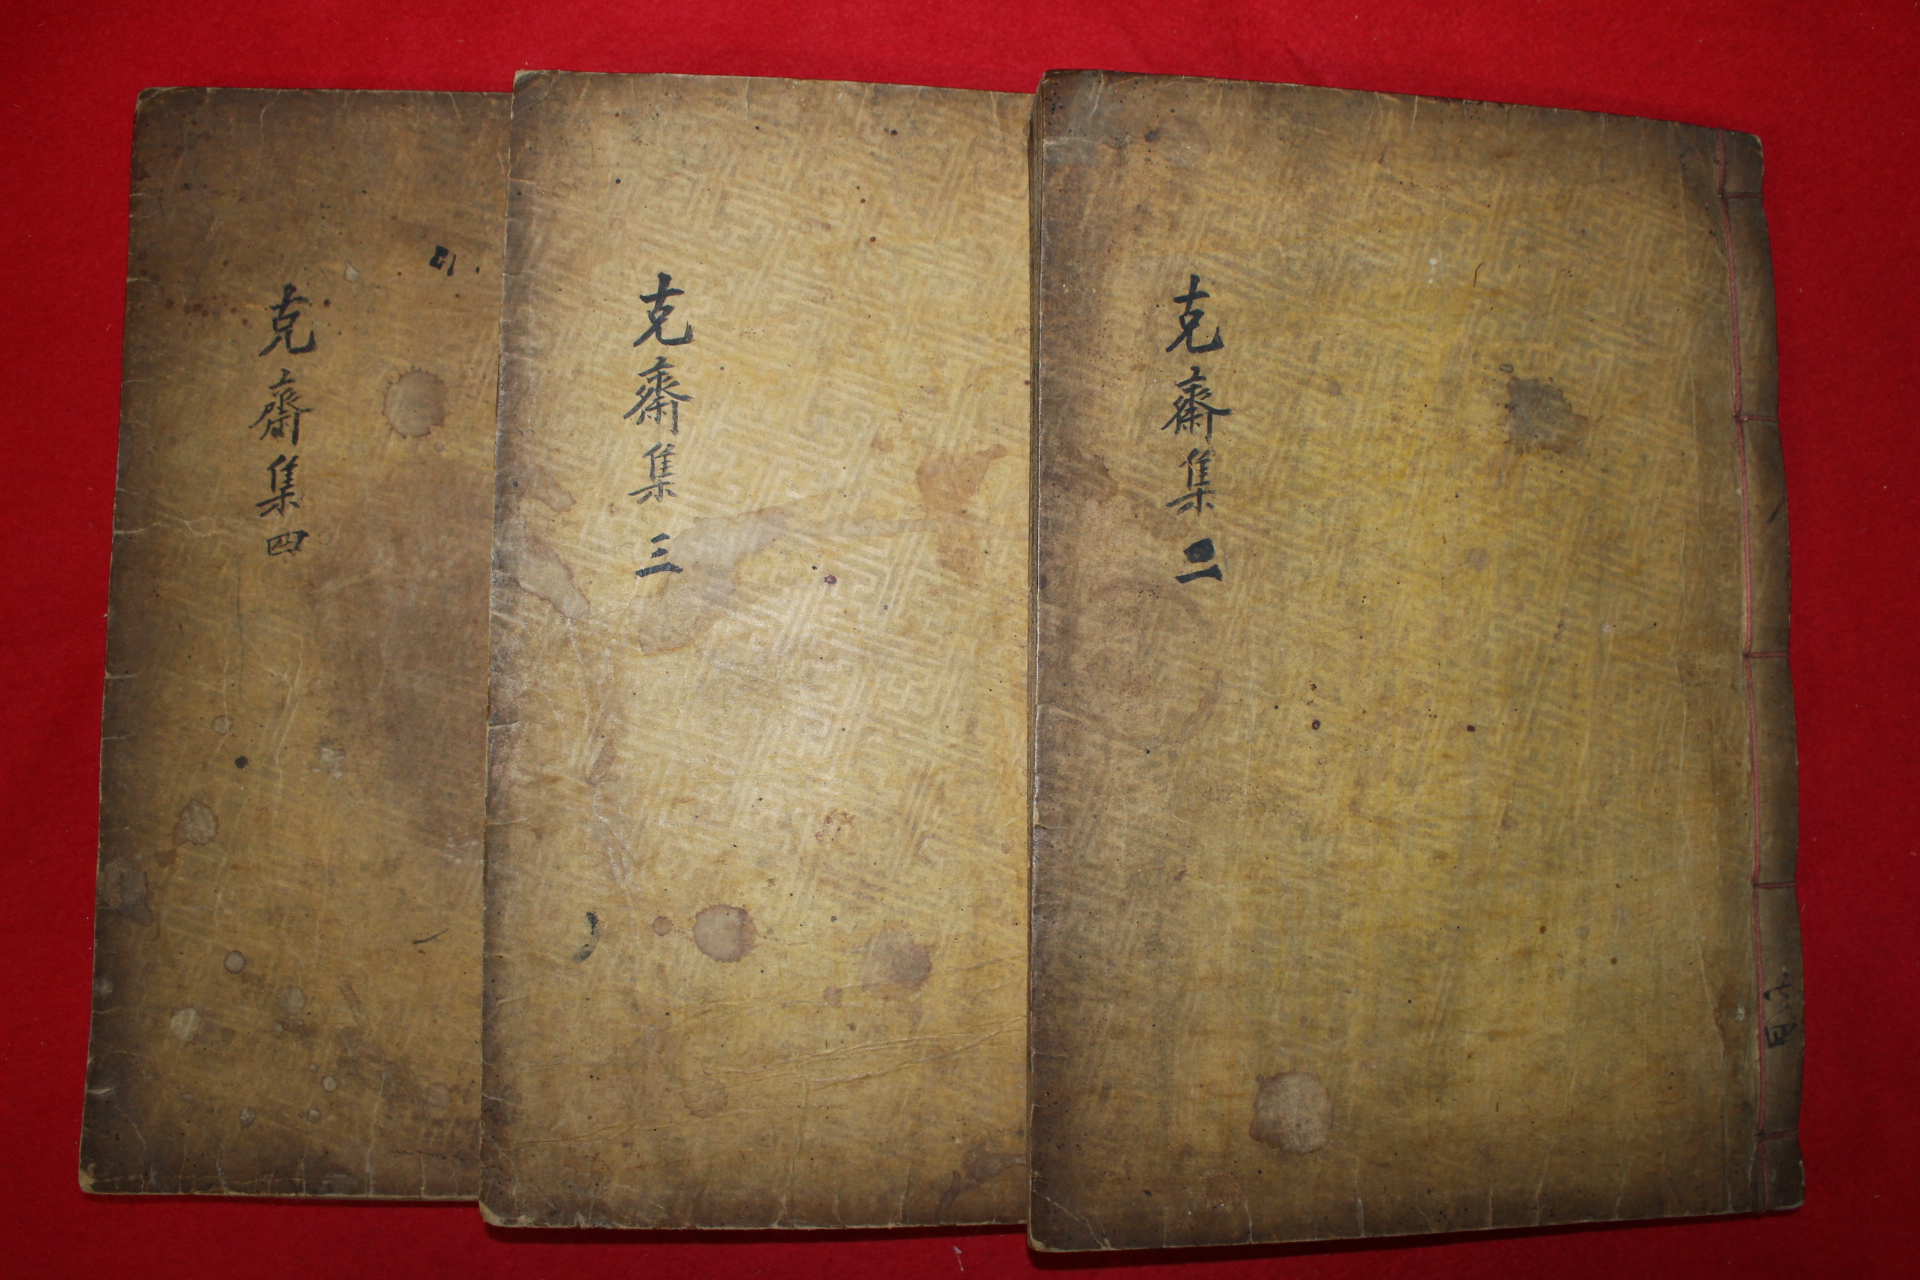 克齋集 二
克齋集 三
克齋集 四